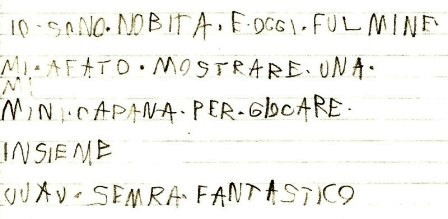 IO·SONO·NOBITA·E·OGGI·FULMINE
MI·AFATO·MOSTRARE·UNA·
MI
MINI·CAPANA·PER·GIOCARE·
INSIEME
UUAU·SEMRA·FANTASTICO